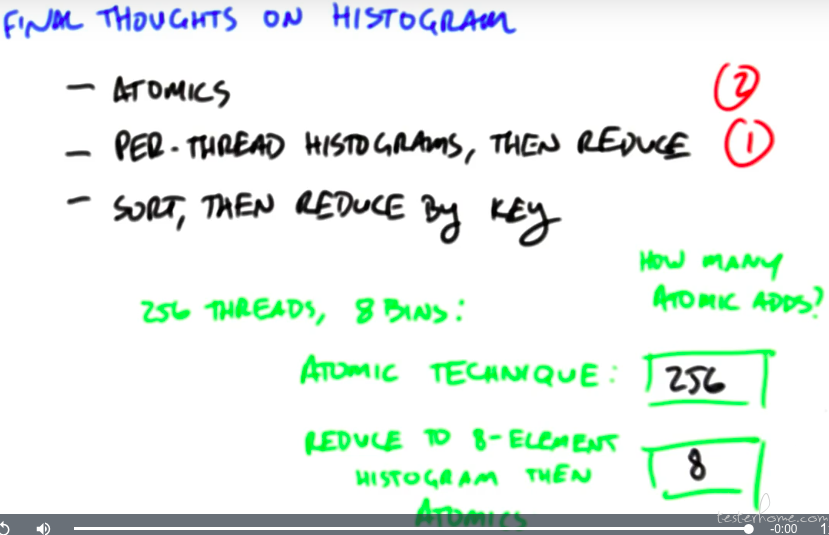 FINAL THOUGHTS ON HISTOGRAM
- ATOMICS 2
- PER-THREAD HISTOGRAMS, THEN REDUCE 1
- SORT, THEN REDUCE BY KEY
HOW MANY
ATOMIC ADDS?
256 THREADS, 8 BINS:
ATOMIC TECHNIQUE: 256
REDUCE TO 8-ELEMENT
HISTOGRAM THEN 8
ATOMICS
testerhome.com
-0:00